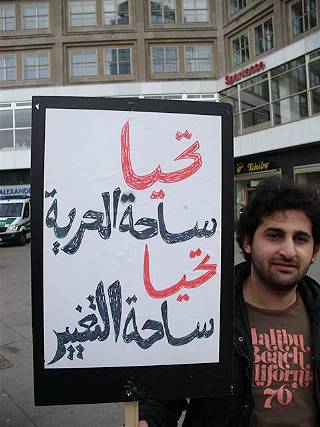 تحيا
ساحة الحرية
تحيا
ساحة التغيير
Sparkasse
Tchibo
ALEXANDER
Malibu
Beach
California
76